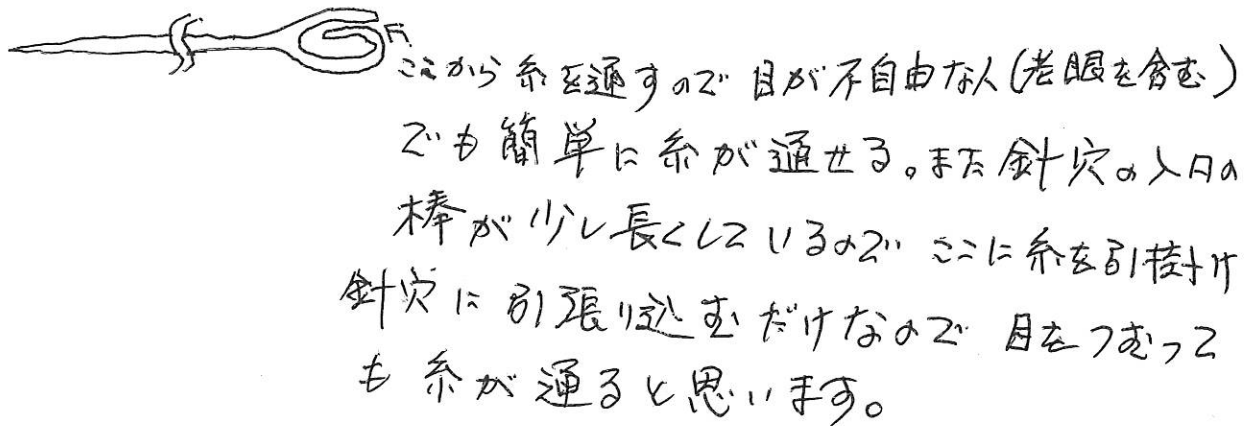 ここから糸を通すので目が不自由な人(老眼を含む)
でも簡単に糸が通せる。また針穴の入口の
棒が少し長くしているので ここに糸を引掛け
針穴に引張り込むだけなので 目をつむって
も糸が通ると思います。